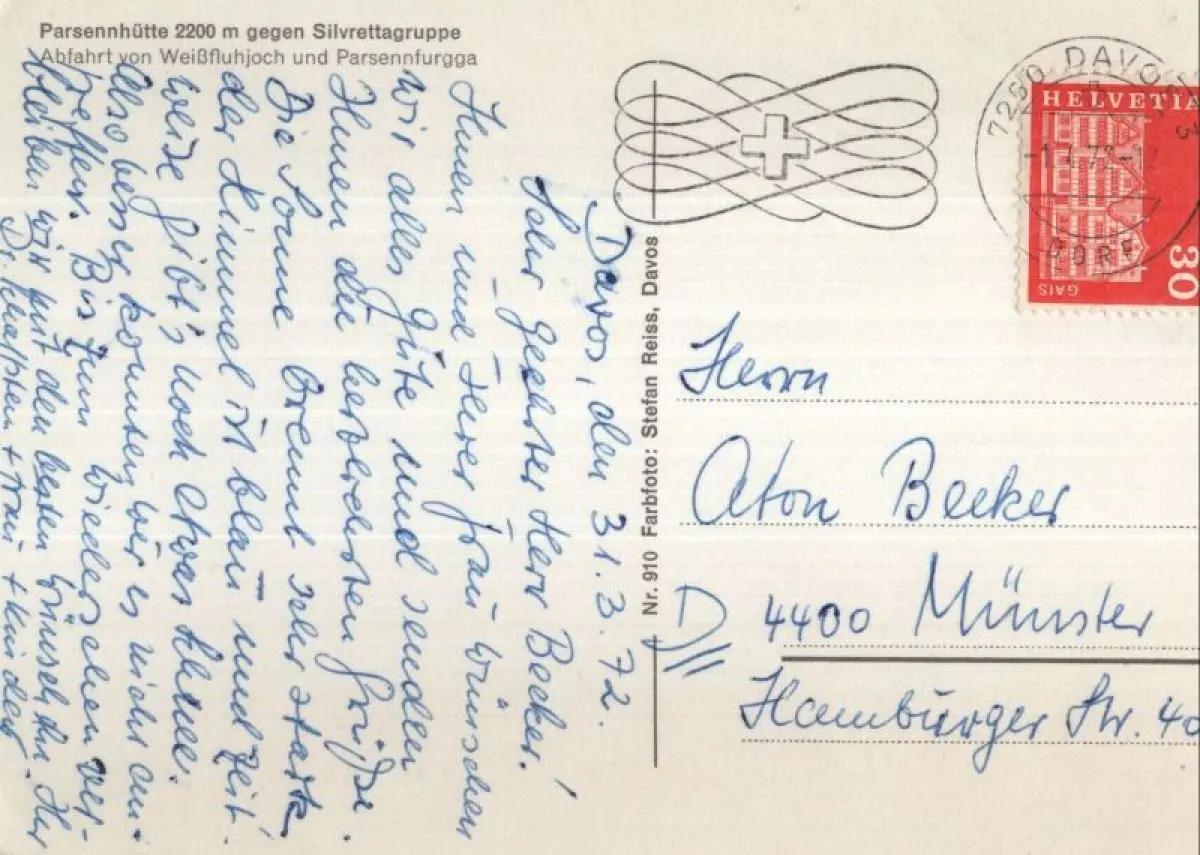 Parsennhütte 2200 m gegen Silvrettagruppe
Abfahrt von Weißfluhjoch und Parsennfurgga
Davos, den 31.3.72.
Sehr geehrter Herr Becker!
Ihnen und Ihrer Frau wünschen
wir alles Gute und senden
Ihnen die herzlichsten Grüße.
Die Sonne brennt sehr stark
der Himmel ist blau und zeit-
weise gibt's noch etwas Schnee.
Also besser konnten wir es nicht an-
treffen. Bis zum Wiedersehen ver-
bleiben wir mit den besten Wünschen Ihr
Dr. + Frau + Kinder
Nr. 910 Farbfoto: Stefan Reiss, Davos
7260 DAVOS 3
DORF
HELVETIA
30
GAIS
Herrn
Aton Becker
D// 4400 Münster
Hamburger Str. 40